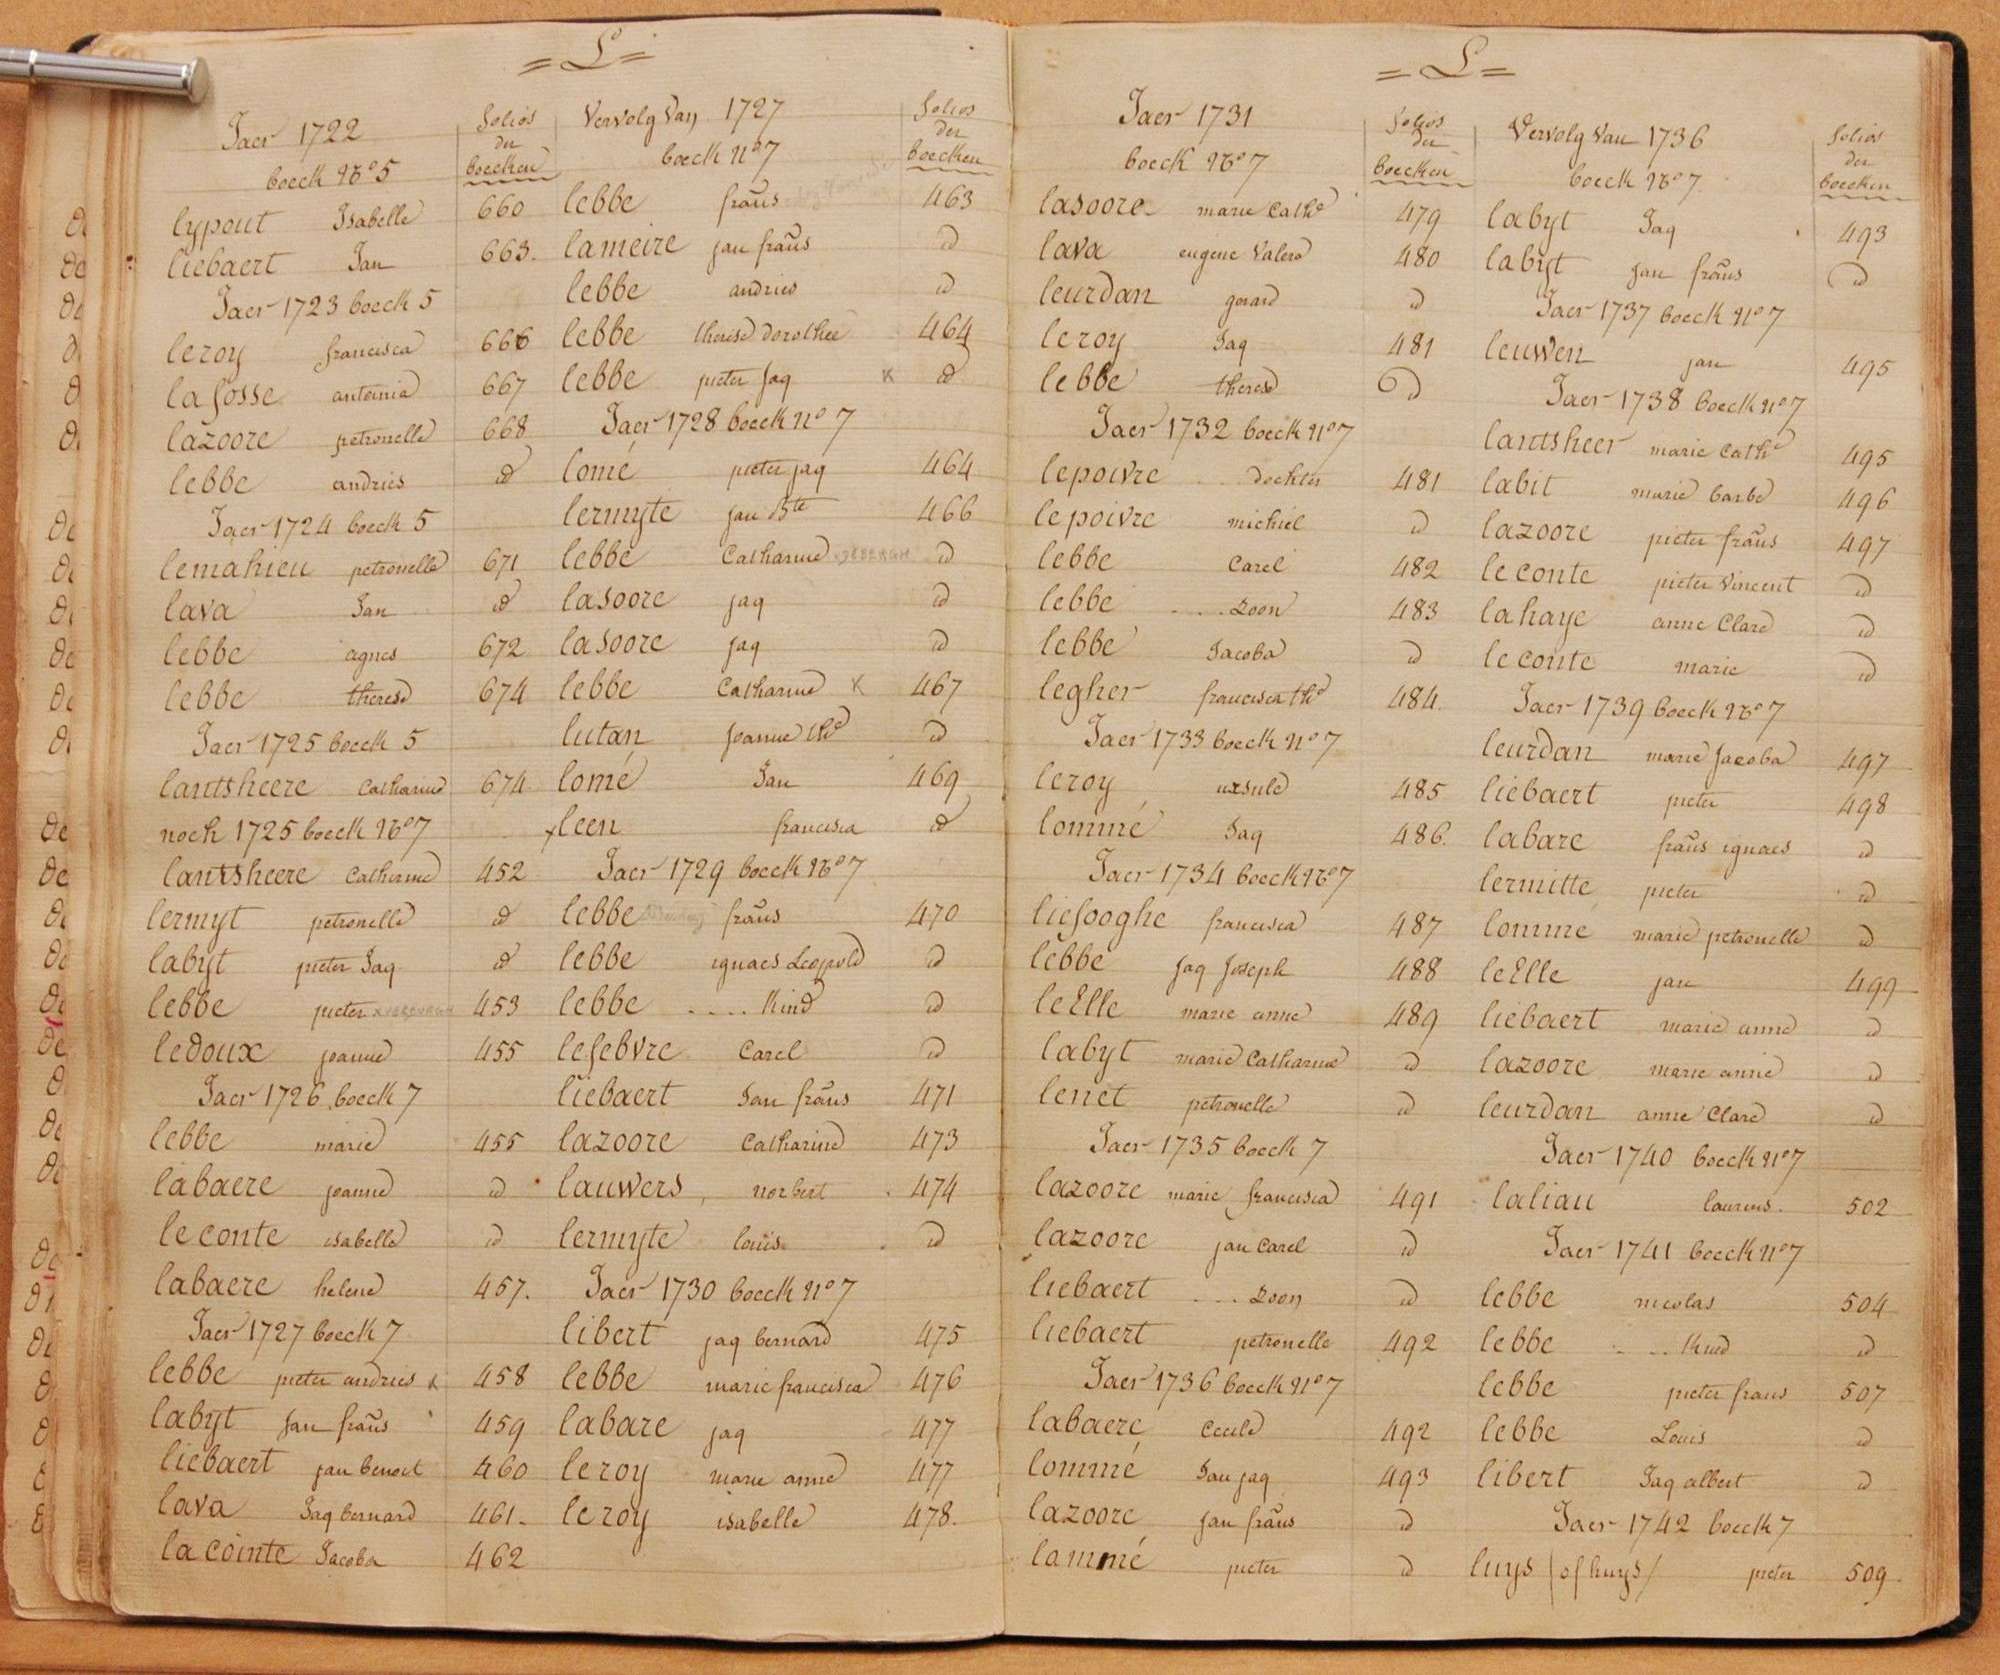 = L =
Jaer 1722
boeck No 5
folios
der
boecken
lypout Isabelle 660
liebaert Jan 663.
Jaer 1723 boeck 5
leroy francisca 666
lafosse antoinia 667
lazoore petronelle 668
lebbe andries id
Jaer 1724 boeck 5
lemahieu petronelle 671
lava Jan id
lebbe agnes 672
lebbe therese 674
Jaer 1725 boeck 5
lantsheere Catharine 674
noch 1725 boeck No 7
lantsheere Catharine 452
lermyt petronelle id
labyt pieter Jaq id
lebbe pieter 453
ledoux joanne 455
Jaer 1726 boeck 7
lebbe marie 455
labaere joanne id
leconte isabelle id
labaere helene 457.
Jaer 1727 boeck 7
lebbe pieter andries x 458
labyt Jan frans 459
liebaert jan benoit 460
lava Jaq bernard 461.
lacointe Jacoba 462
Vervolg Van 1727
boeck No 7
folios
der
boecken
lebbe frans 463
lameire jan frans id
lebbe andries id
lebbe therese dorothee 464
lebbe pieter Jaq K id
Jaer 1728 boeck No 7
lomé pieter jaq 464
lermyte jan Bte 466
lebbe Catharine id
lasoore jaq id
lasoore jaq id
lebbe Catharine K 467
lutan joanne the id
lomé Jan 469
x leen francisca id
Jaer 1729 boeck No 7
lebbe frans 470
lebbe ignaes Leopold id
lebbe .... Kind id
lefebvre Carel id
liebaert Jan frans 471
lazoore Catharine 473
lauwers norbert 474
lermyte louis id
Jaer 1730 boeck No 7
libert jaq bernard 475
lebbe marie francisca 476
labare jaq 477
leroy marie anne 477
leroy isabelle 478.
= L =
Jaer 1731
boeck No 7
folios
der
boecken
lasoore marie Cathe 479
lava eugene Valero 480
leurdan gerard id
leroy Jaq 481
lebbe therese id
Jaer 1732 boeck No 7
lepoivre ... dochter 481
lepoivre michiel id
lebbe Carel 482
lebbe .... Zoon 483
lebbe Jacoba id
legher francisca the 484.
Jaer 1733 boeck No 7
leroy ursule 485
lommé Jaq 486.
Jaer 1734 boeck No 7
liefooghe francisca 487
lebbe Jaq Joseph 488
leElle marie anne 489
labyt marie Catharine id
lenet petronelle id
Jaer 1735 boeck 7
lazoore marie francisca 491
lazoore jan Carel id
liebaert ... Zoon id
liebaert petronelle 492
Jaer 1736 boeck No 7
labaere Cecile 492
lommé Jan jaq 493
lazoore jan frans id
lammé pieter id
Vervolg Van 1736
boeck No 7
folios
der
boecken
labyt Jaq 493
labyt jan frans id
Jaer 1737 boeck No 7
leuwen jan 495
Jaer 1738 boeck No 7
lantsheer marie Cathe 495
labit marie barbe 496
lazoore pieter frans 497
leconte pieter Vincent id
lahaye anne Clare id
leconte marie id
Jaer 1739 boeck No 7
leurdan marie Jacoba 497
liebaert pieter 498
labare frans ignaes id
lermitte pieter id
lommé marie petronelle id
leElle jan 499
liebaert marie anne id
lazoore marie anne id
leurdan anne Clare id
Jaer 1740 boeck No 7
laliau laurens. 502
Jaer 1741 boeck No 7
lebbe nicolas 504
lebbe ... Kind id
lebbe pieter frans 507
lebbe Louis id
libert Jaq albert id
Jaer 1742 boeck 7
luys / of huys / pieter 509